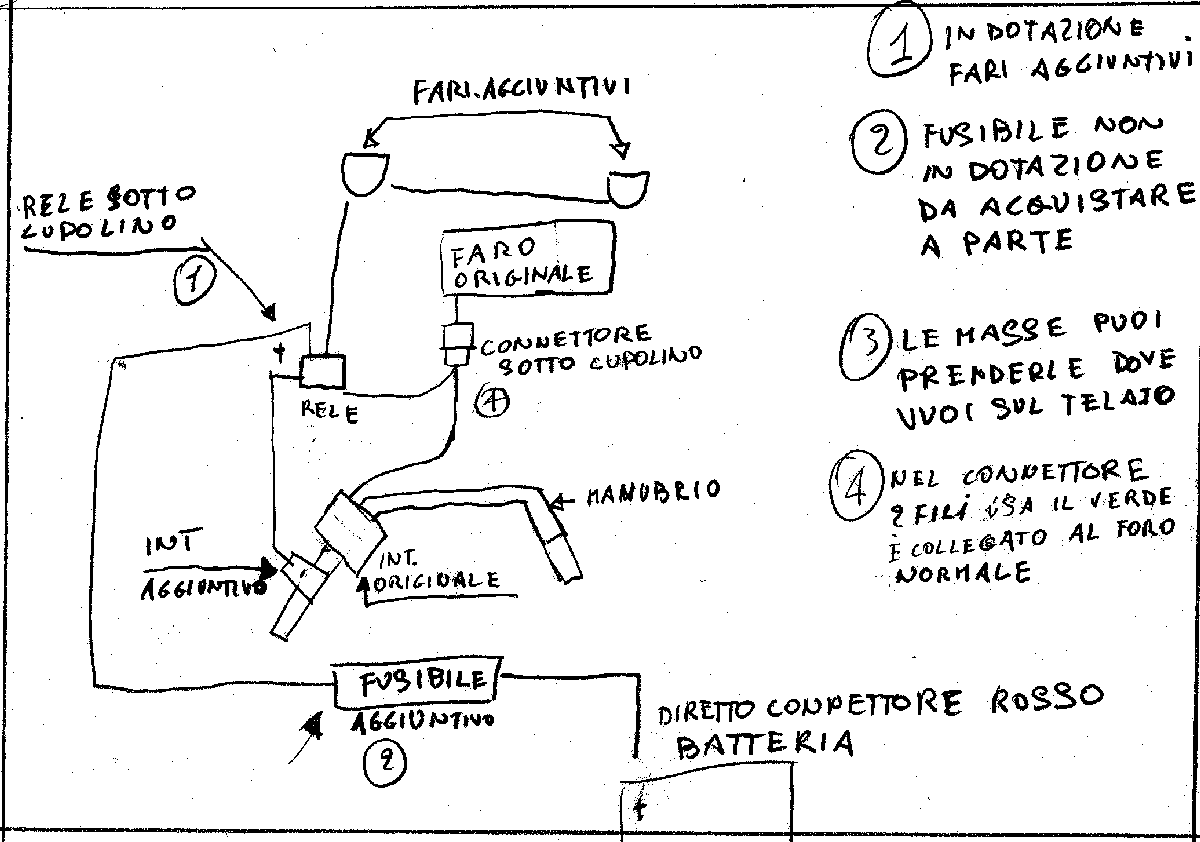 FARI AGGIUNTIVI
RELE SOTTO
CUPOLINO
1
FARO
ORIGINALE
CONNETTORE
SOTTO CUPOLINO
4
+
RELE
MANUBRIO
INT
AGGIUNTIVO
INT.
ORIGINALE
FUSIBILE
AGGIUNTIVO
2
DIRETTO CONNETTORE ROSSO
BATTERIA
+
1 IN DOTAZIONE
FARI AGGIUNTIVI
2 FUSIBILE NON
IN DOTAZIONE
DA ACQUISTARE
A PARTE
3 LE MASSE PUOI
PRENDERLE DOVE
VUOI SUL TELAIO
4 NEL CONNETTORE
2 FILI USA IL VERDE
È COLLEGATO AL FORO
NORMALE